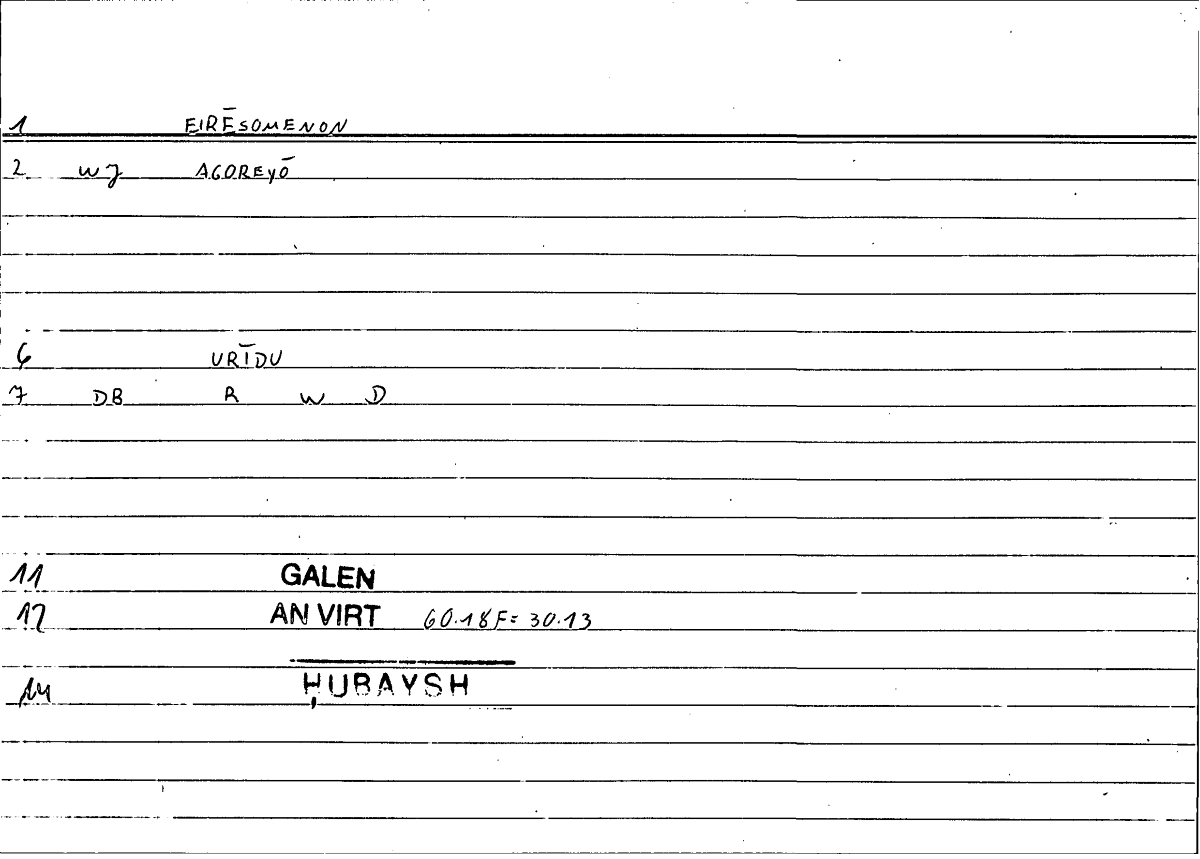 1 EIRĒSOMENON
2 WJ AGOREYŌ
6 URĪDU
7 DB R W D
11 GALEN
12 AN VIRT 60.18F= 30.13
14 ḤUBAYSH